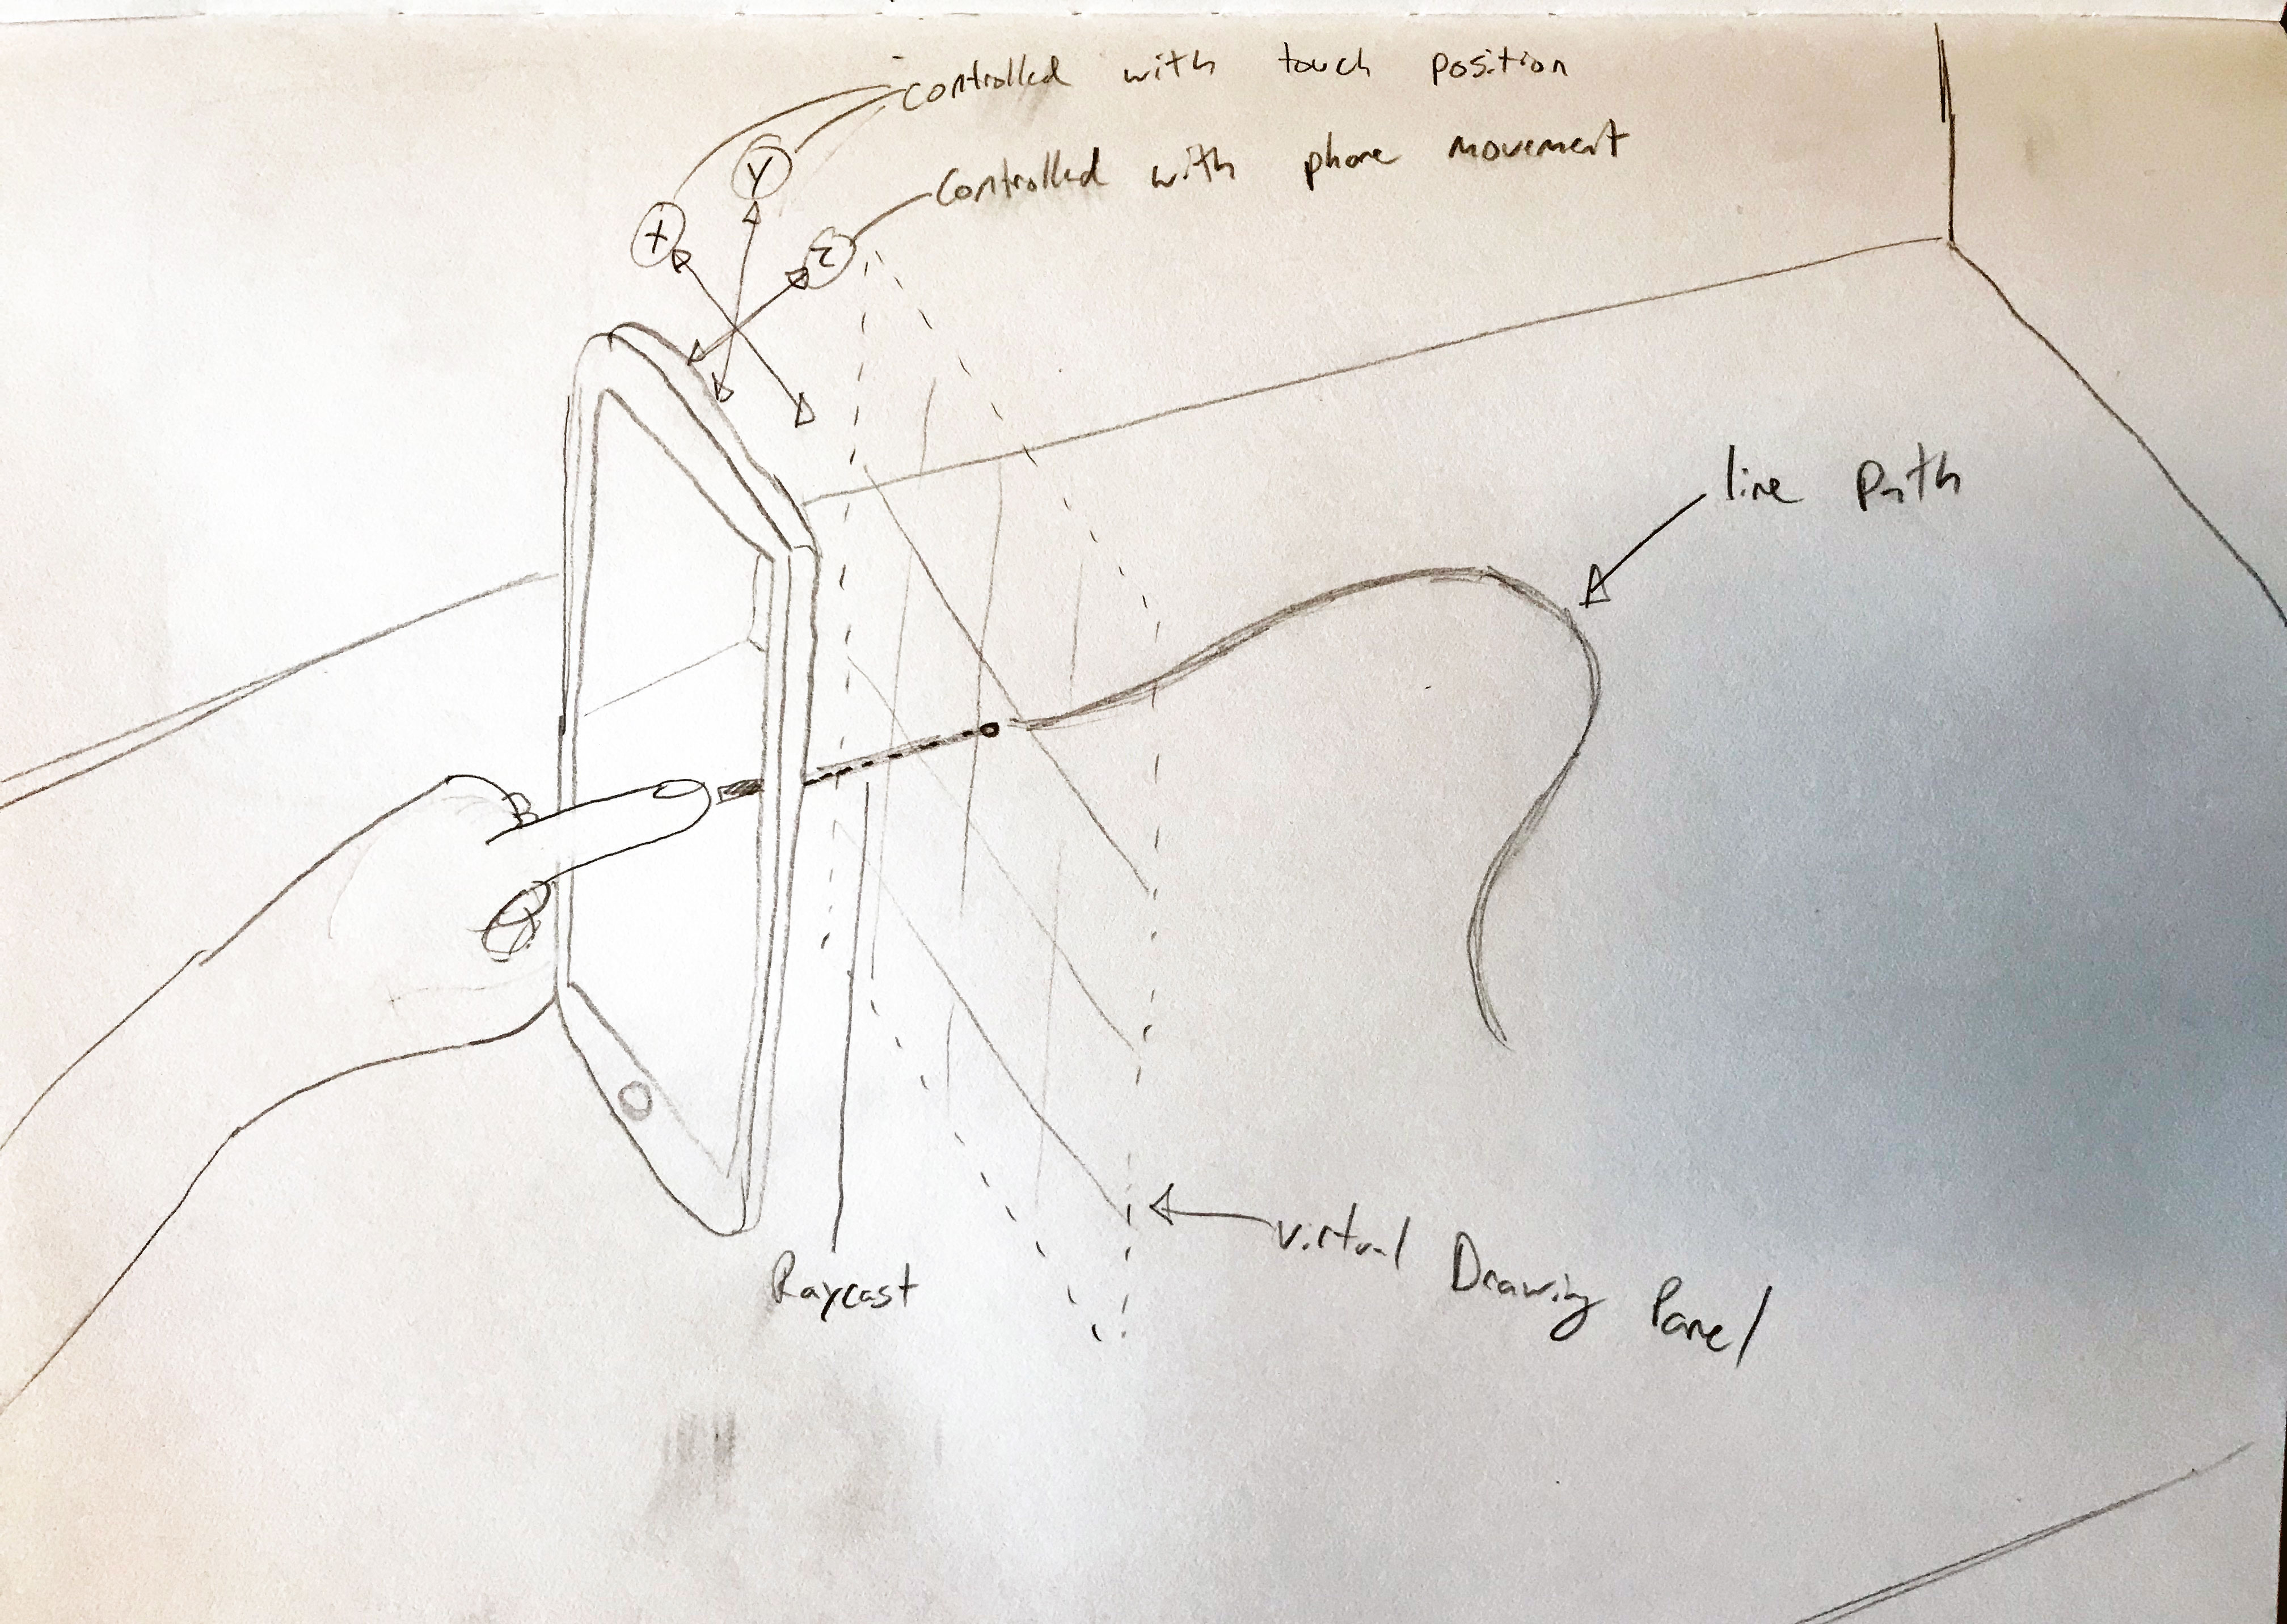 controlled with touch position
Controlled with phone movement
X
Y
Z
line Path
Raycast
Virtual Drawing Panel